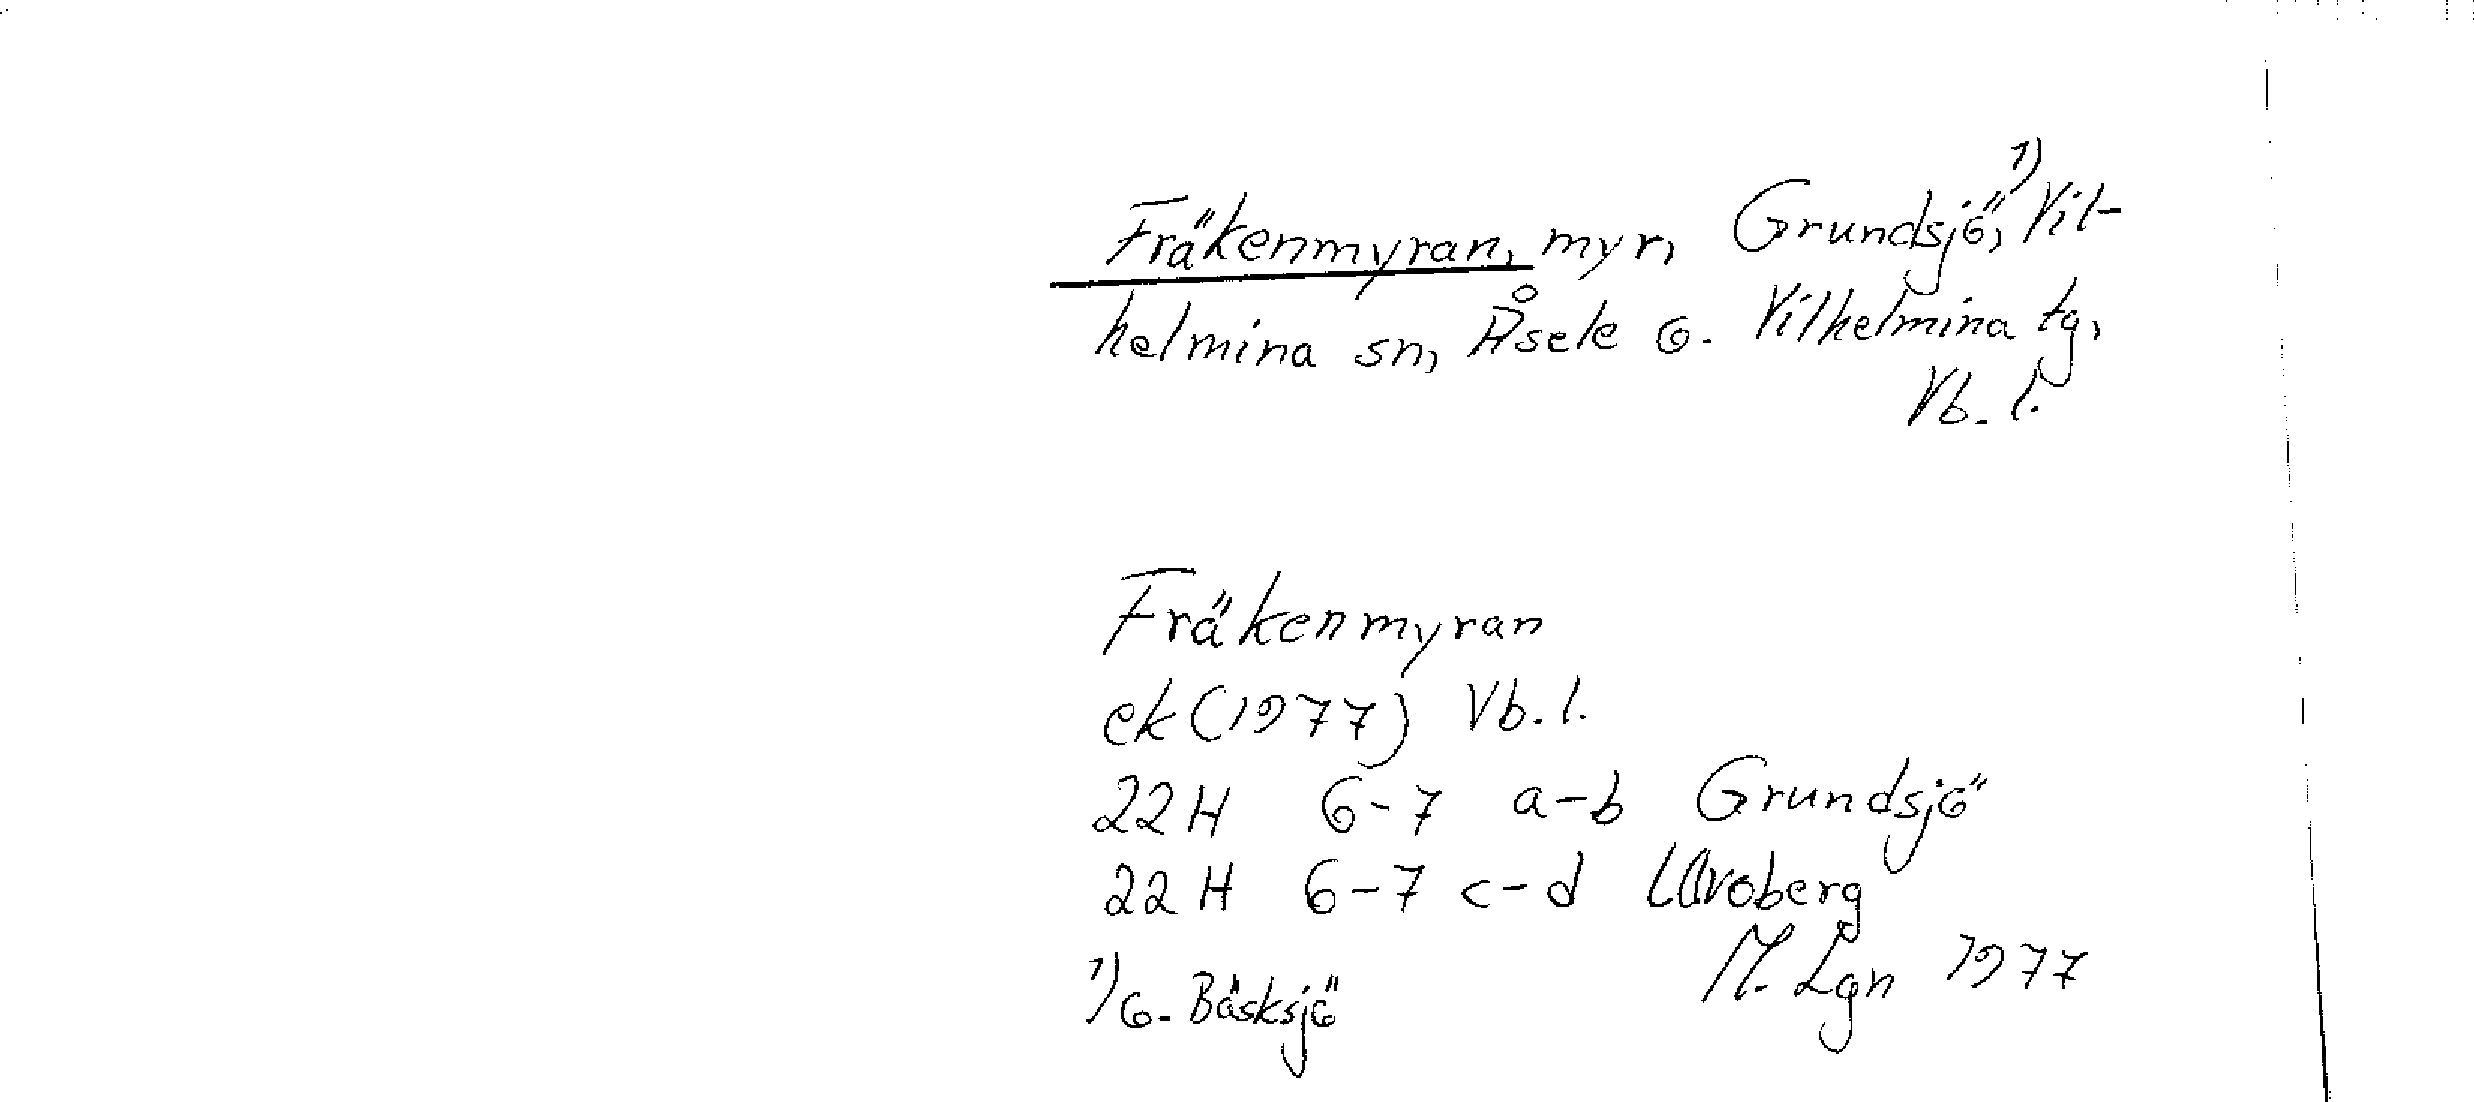 Fräkenmyran, myr, Grundsjö,¹⁾ Vil-
helmina sn, Åsele o. Vilhelmina tg,
Vb. l.
Fräkenmyran
ek (1977) Vb. l.
22H 6-7 a-b Grundsjö
22H 6-7 c-d Ulvoberg
M. Lgn 1977
¹⁾ o. Bäsksjö